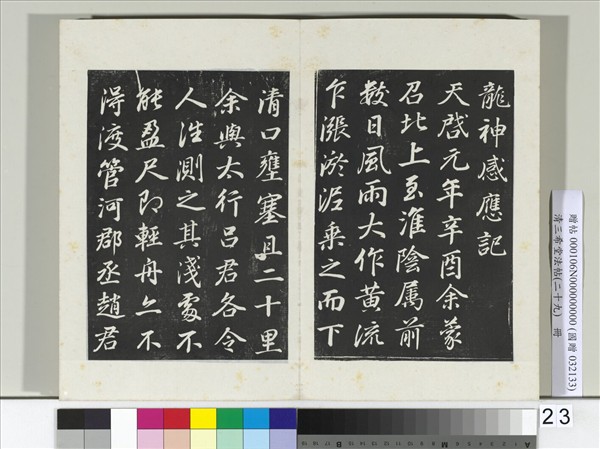 龍神感應記
天啓元年辛酉余蒙
召北上至淮陰属前
數日風雨大作黃流
乍漲淤泥乗之而下
清口壅塞且二十里
余與太行呂君各令
人往測之其淺處不
能盈尺即輕舟亦不
得渡管河郡丞趙君
贈帖 000106N000000000 (國贈 032133)
清三希堂法帖(二十九) 冊
23